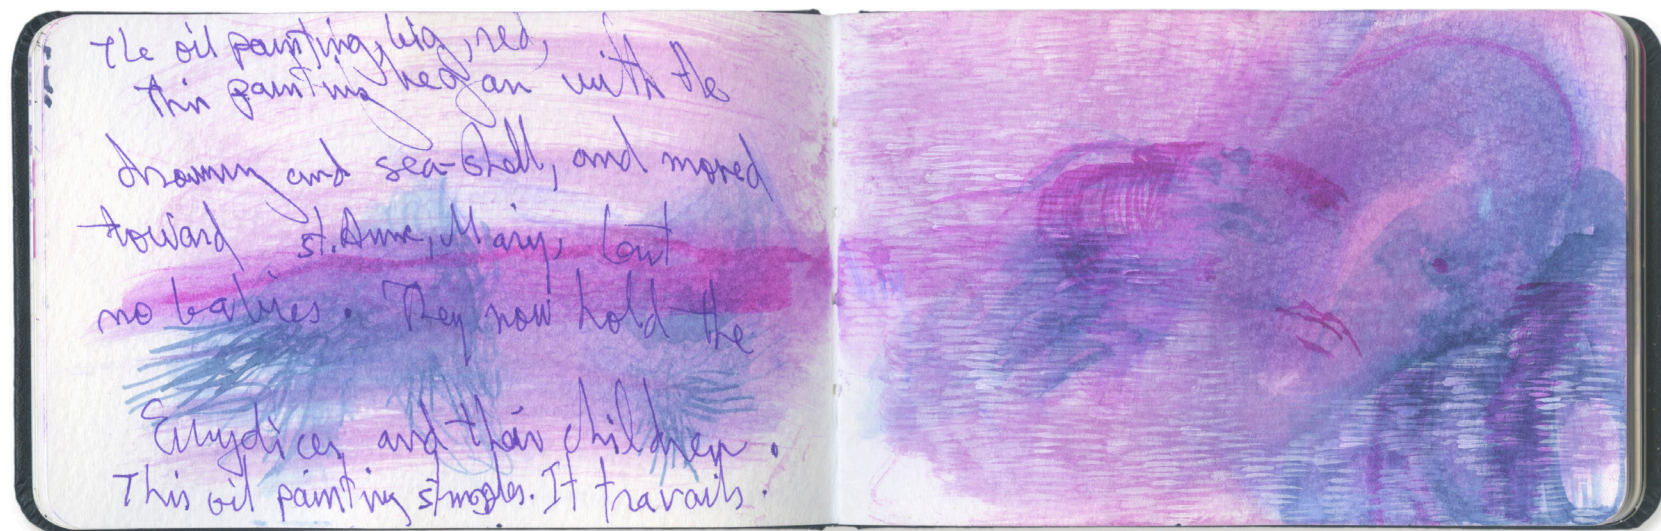 the oil painting, big, red,
this painting began with the
drawing and sea-shell, and moved
toward st. Anne, Mary, but
no babies. They now hold the
Eurydices and their children.
This oil painting struggles. It travails.